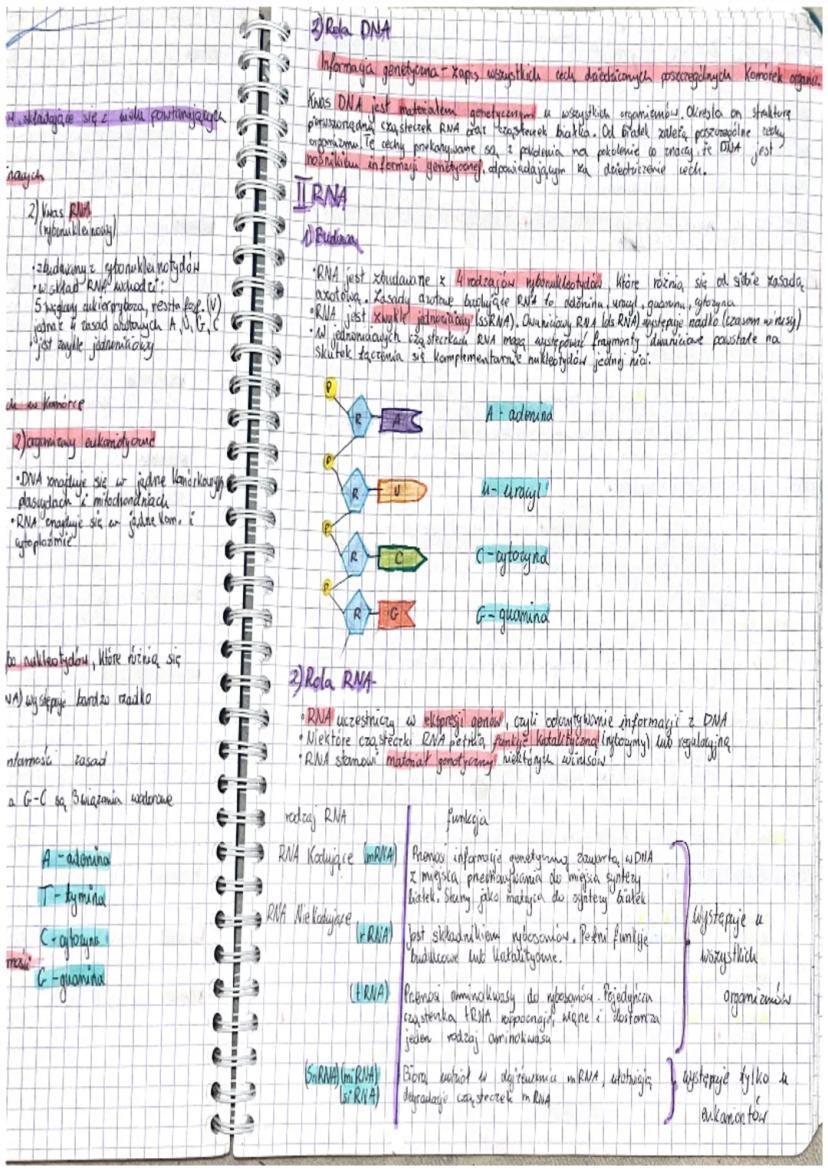 H, składające się z wielu powtarzających
nowych
2) Kwas RNA
(rybonukleinowy)
• zbudowany z rybonukleinotydów
• w skład RNA wchodzi:
5 węglowy cukier ryboza, reszta fosf. (V)
jedna z 4 zasad azotowych A, U, G, C
• jest zwykle jednoniciowy
w komórce
2) organizmy eukariotyczne
• DNA znajduje się w jądrze komórkowym
plastydach i mitochondriach
• RNA znajduje się w jądrze kom. i
cytoplazmie
nukleotydów, które różnią się
NA) występuje bardzo rzadko
ntarności zasad
a G-C są 3 wiązania wodorowe
A - adenina
T - tymina
C - cytozyna
G - guanina
2) Rola DNA
Informacja genetyczna - zapis wszystkich cech dziedziczonych poszczególnych komórek organiz.
Kwas DNA jest materiałem genetycznym u wszystkich organizmów. Określa on strukturę
pierwszorzędną cząsteczek RNA oraz cząsteczek białka. Od białek zależą poszczególne cechy
organizmu. Te cechy przekazywane są z pokolenia na pokolenie co znaczy, że DNA jest
nośnikiem informacji genetycznej, odpowiadającym za dziedziczenie cech.
II RNA
1) Budowa
• RNA jest zbudowane z 4 rodzajów rybonukleotydów, które różnią się od siebie zasadą
azotową. Zasady azotowe budujące RNA to adenina, uracyl, guanina, cytozyna
• RNA jest zwykle jednoniciowy (ssRNA). Dwuniciowy RNA (ds RNA) występuje rzadko (czasem wirusy)
• W jednoniciowych cząsteczkach RNA mogą występować fragmenty dwuniciowe powstałe na
skutek łączenia się komplementarnie nukleotydów jednej nici.
P
R A
A - adenina
P
R U
U - uracyl
P
R C
C - cytozyna
P
R G
G - guanina
2) Rola RNA
• RNA uczestniczą w ekspresji genów, czyli odczytywanie informacji z DNA
• Niektóre cząsteczki RNA pełnią funkcję katalityczną (rybozymy) lub regulacyjną
• RNA stanowi materiał genetyczny niektórych wirusów
rodzaj RNA funkcja
RNA Kodujące (mRNA)
Przenosi informację genetyczną zawartą w DNA
z miejsca przechowywania do miejsca syntezy
białek. Służy jako matryca do syntezy białek
RNA Niekodujące
(rRNA)
jest składnikiem rybosomów. Pełni funkcje
budulcowe lub katalityczne.
(tRNA)
Przenosi aminokwasy do rybosomów. Pojedyńcza
cząsteczka tRNA rozpoznaje, wiąże i dostarcza
jeden rodzaj aminokwasu
występuje u
wszystkich
organizmów
(SnRNA) (miRNA)
(siRNA)
Biorą udział w dojrzewaniu mRNA, ułatwiają
degradację cząsteczek mRNA
występuje tylko u
eukariontów